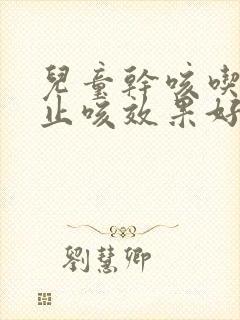 兒童幹咳喫
止咳效果好
劉慧卿